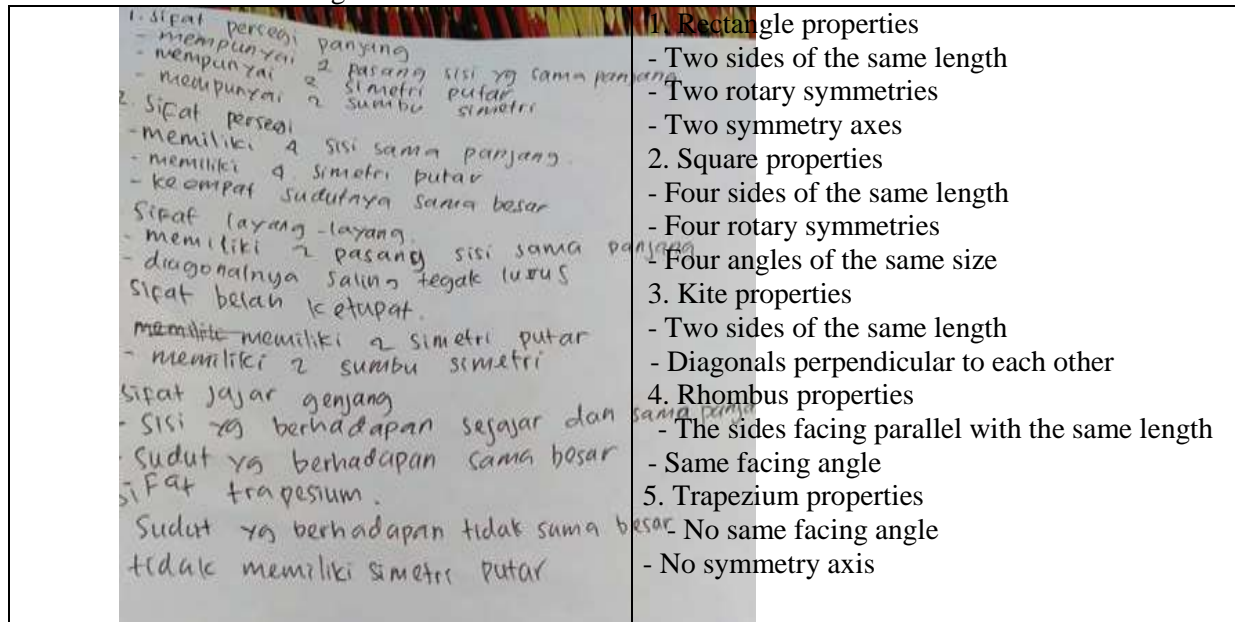 1. Sifat persegi panyang
- mempunyai 2 pasang sisi yg sama panjang
- mempunyai 2 simetri putar
- mempunyai 2 sumbu simetri
2. Sifat persegi
- memiliki 4 sisi sama panjang.
- memiliki 4 simetri putar
- keempat sudutnya sama besar
Sifat layang-layang.
- memiliki 2 pasang sisi sama panjang
- diagonalnya saling tegak lurus
Sifat belah ketupat.
memiliki 2 simetri putar
- memiliki 2 sumbu simetri
Sifat jajar genjang
- sisi yg berhadapan sejajar dan sama
- sudut yg berhadapan sama besar
Sifat trapesium.
Sudut yg berhadapan tidak sama besar
tidak memiliki simetri putar
1. Rectangle properties
- Two sides of the same length
- Two rotary symmetries
- Two symmetry axes
2. Square properties
- Four sides of the same length
- Four rotary symmetries
- Four angles of the same size
3. Kite properties
- Two sides of the same length
- Diagonals perpendicular to each other
4. Rhombus properties
- The sides facing parallel with the same length
- Same facing angle
5. Trapezium properties
- No same facing angle
- No symmetry axis